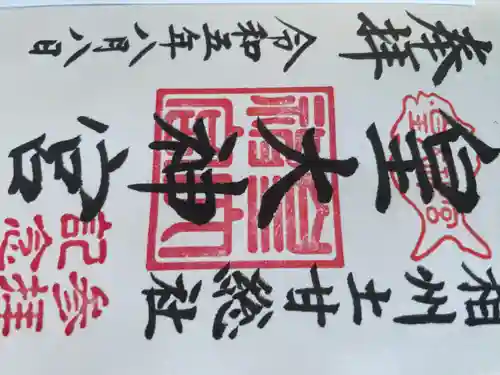 相州土甘総社
皇大神宮
奉拝
令和五年八月八日
参拝
記念